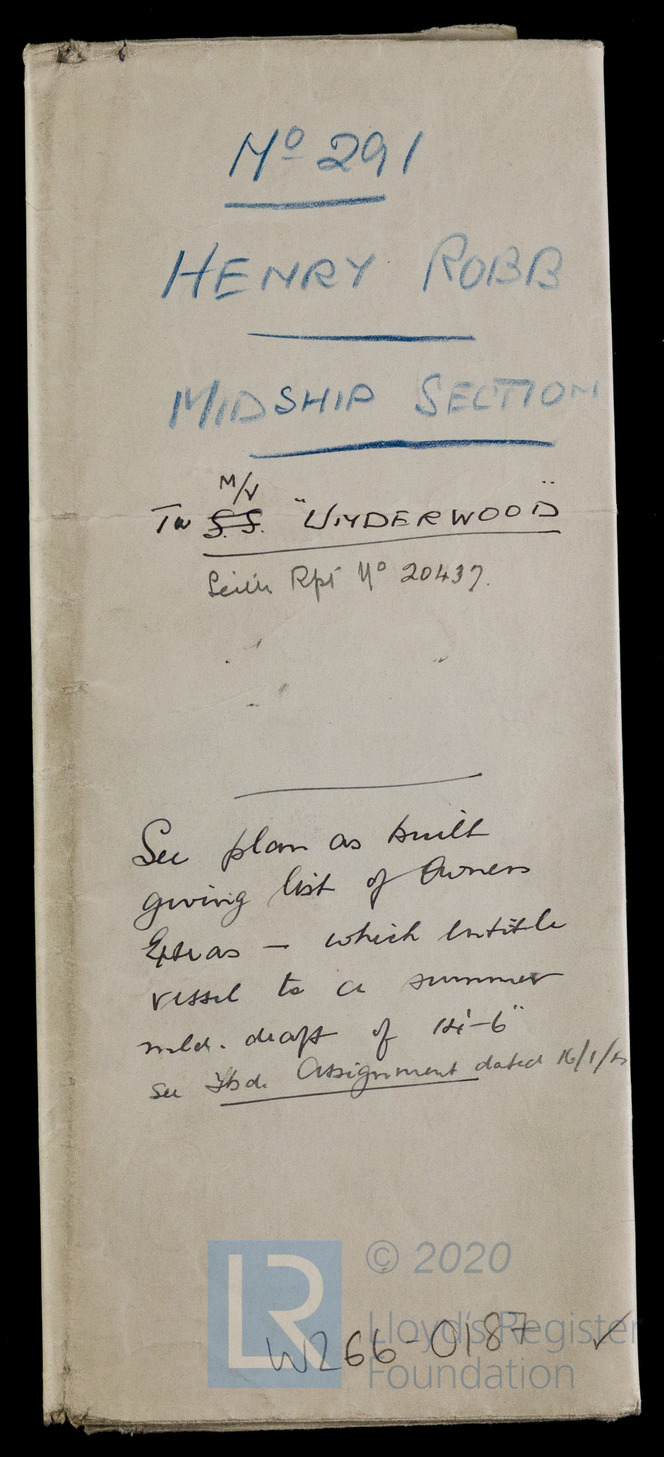 No 291
HENRY ROBB
MIDSHIP SECTION
M/V
Tw S.S. "UNDERWOOD"
Leith Rpt No 20437.
See plan as built
giving list of Owners
Extras — which entitle
vessel to a summer
mld. draft of
see Fbd. Assignment dated 16/1/
LR
© 2020
Lloyd's Register
Foundation
W266-0187 ✓